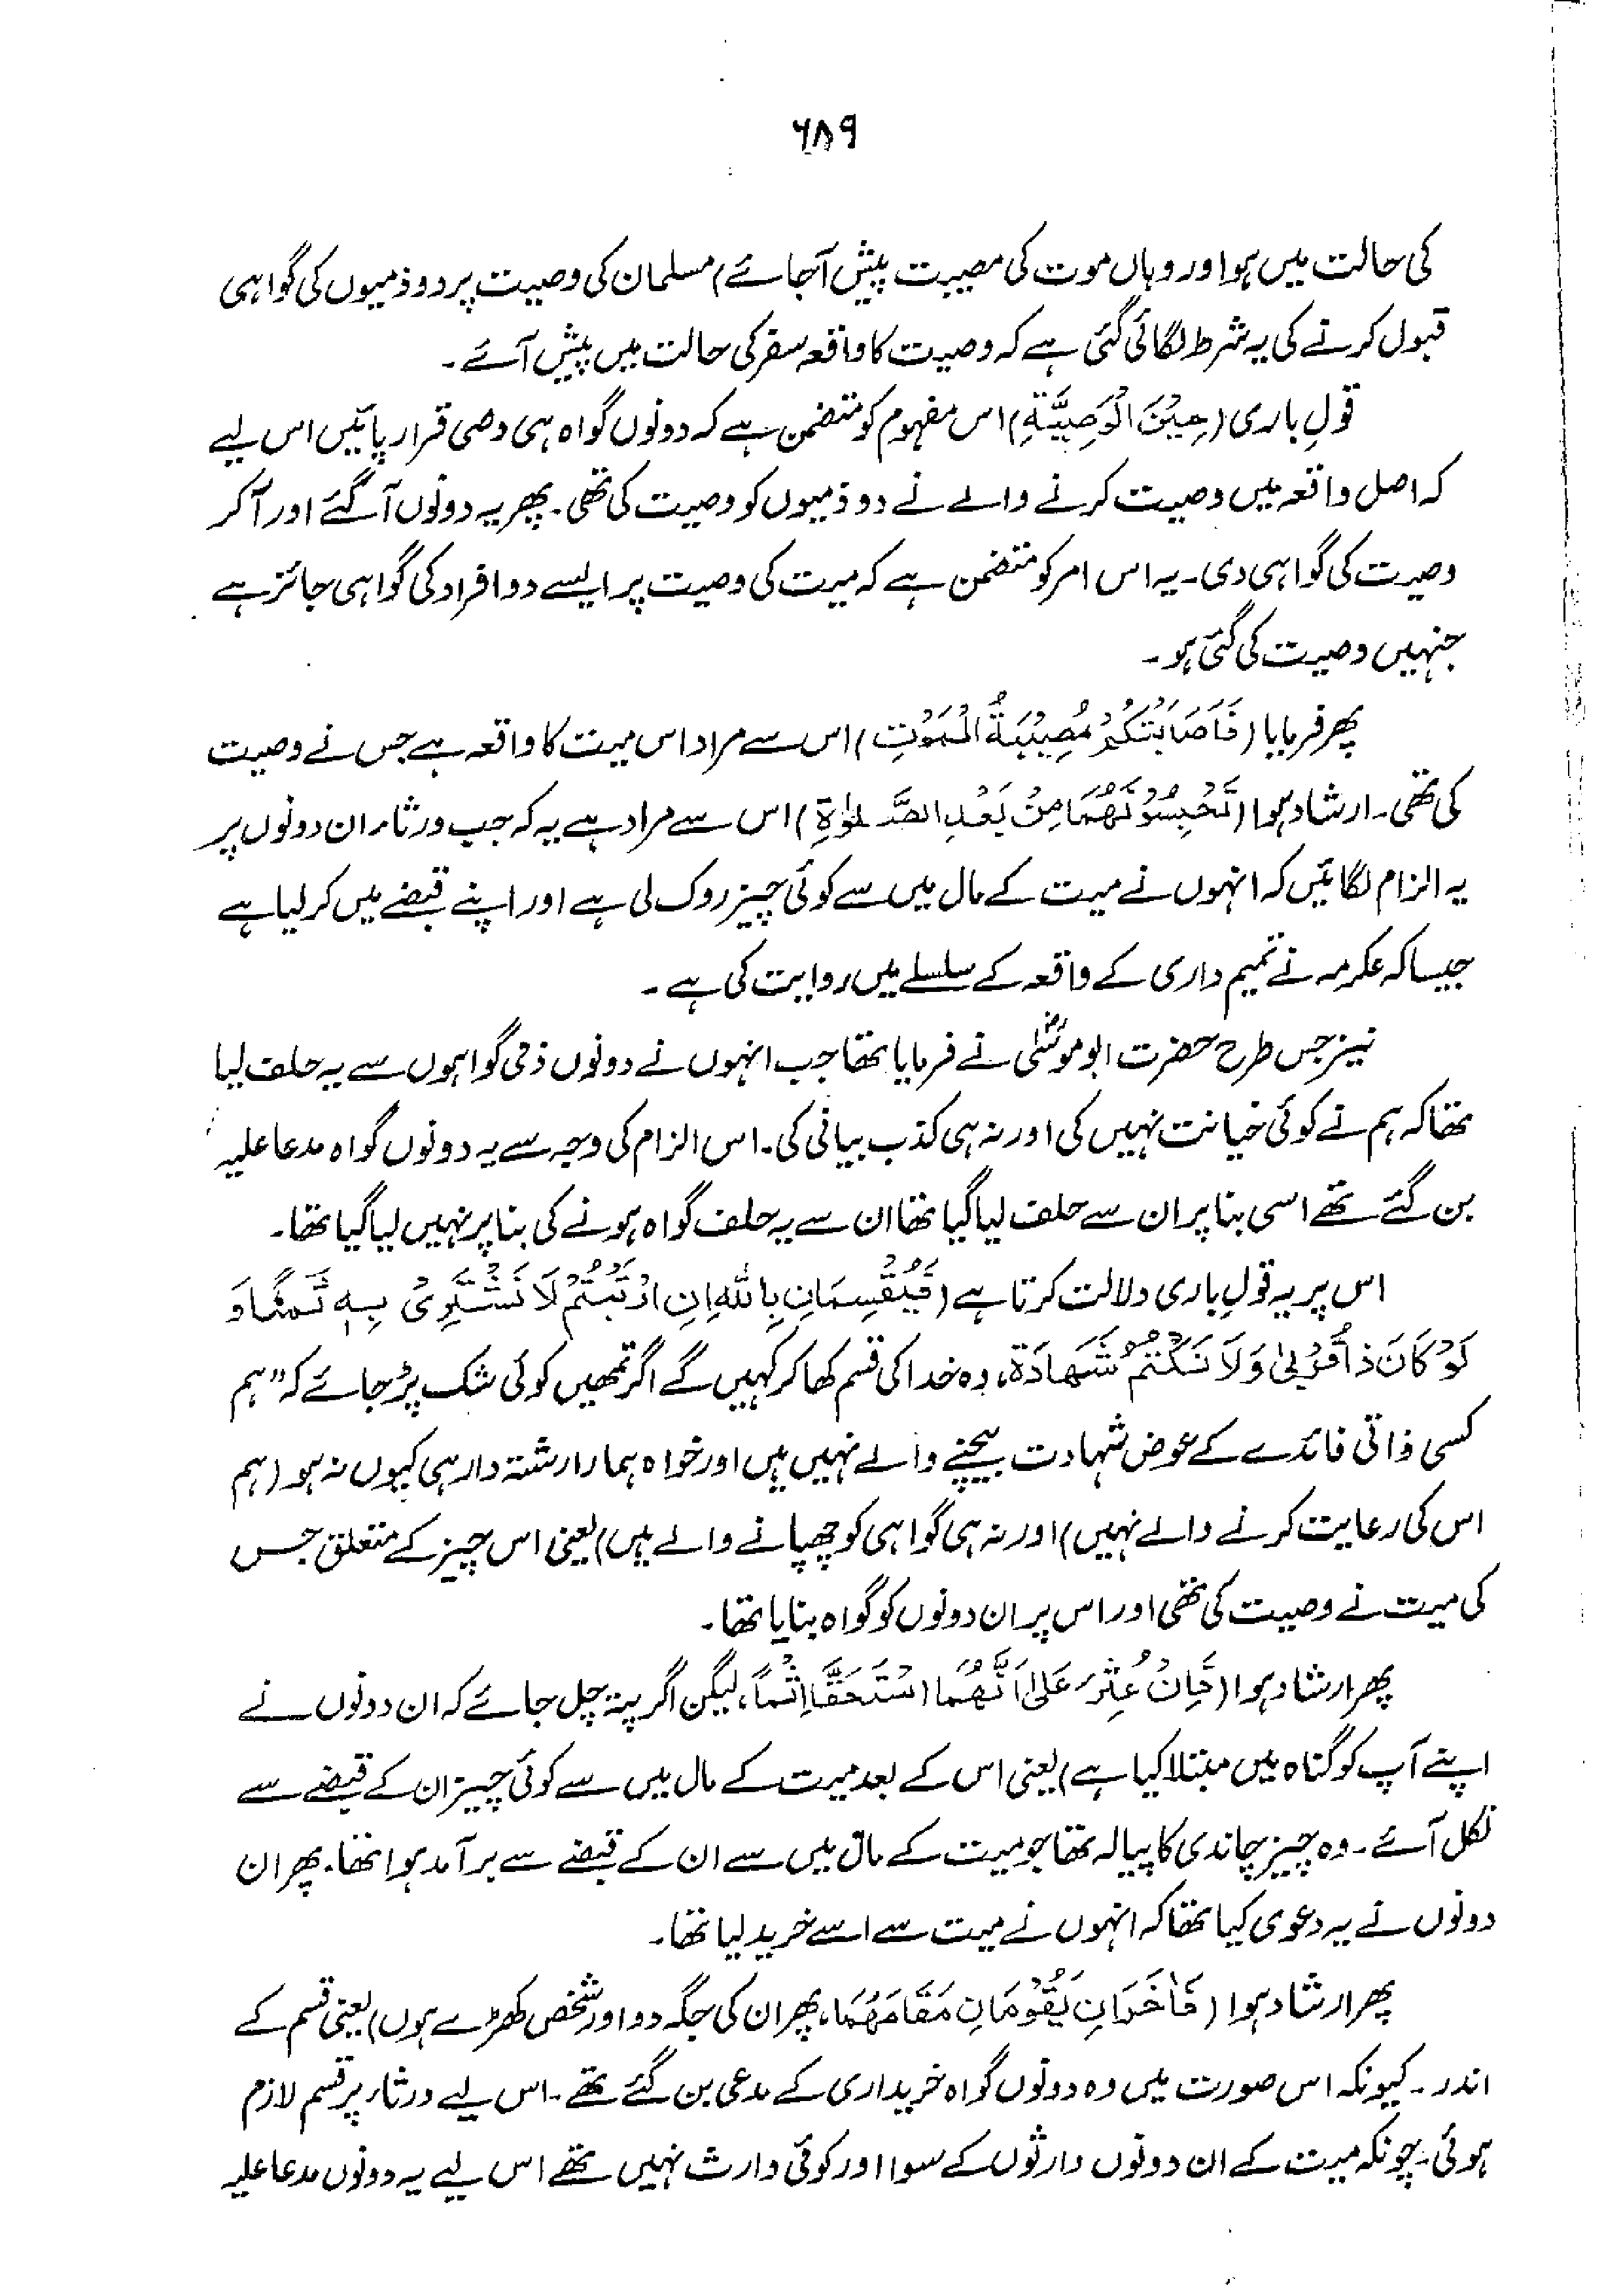 ۶۸۹
کی حالت میں ہو اور وہاں موت کی مصیبت پیش آجائے) مسلمان کی وصیت پر دو ذمیوں کی گواہی
قبول کرنے کی یہ شرط لگائی گئی ہے کہ وصیت کا واقعہ سفر کی حالت میں پیش آئے۔
قولِ باری (حِیْنَ الْوَصِیَّةِ) اس مفہوم کو متضمن ہے کہ دونوں گواہ ہی وصی قرار پائیں اس لیے
کہ اصل واقعہ میں وصیت کرنے والے نے دو ذمیوں کو وصیت کی تھی۔ پھر یہ دونوں آگئے اور آکر
وصیت کی گواہی دی۔ یہ اس امر کو متضمن ہے کہ میت کی وصیت پر ایسے دو افراد کی گواہی جائز ہے
جنہیں وصیت کی گئی ہو۔
پھر فرمایا (فَاَصَابَتْکُمْ مُصِیْبَةُ الْمَوْتِ) اس سے مراد اس میت کا واقعہ ہے جس نے وصیت
کی تھی۔ ارشاد ہوا (تَحْبِسُوْنَھُمَا مِنْ بَعْدِ الصَّلوٰةِ) اس سے مراد ہے یہ کہ جب ورثاء ان دونوں پر
یہ الزام لگائیں کہ انہوں نے میت کے مال میں سے کوئی چیز روک لی ہے اور اپنے قبضے میں کرلیا ہے
جیسا کہ عکرمہ نے تمیم داری کے واقعہ کے سلسلے میں روایت کی ہے۔
نیز جس طرح حضرت ابوموسٰیؓ نے فرمایا تھا جب انہوں نے دونوں ذمی گواہوں سے یہ حلف لیا
تھا کہ ہم نے کوئی خیانت نہیں کی اور نہ ہی کذب بیانی کی۔ اس الزام کی وجہ سے یہ دونوں گواہ مدعا علیہ
بن گئے تھے اسی بنا پر ان سے حلف لیا گیا تھا ان سے یہ حلف گواہ ہونے کی بنا پر نہیں لیا گیا تھا۔
اس پر یہ قولِ باری دلالت کرتا ہے (فَیُقْسِمَانِ بِاللّٰهِ اِنِ ارْتَبْتُمْ لَا نَشْتَرِیْ بِهٖ ثَمَنًا وَ
لَوْ کَانَ ذَا قُرْبٰی وَلَا نَکْتُمُ شَھَادَةَ، وہ خدا کی قسم کھا کر کہیں گے اگر تمھیں کوئی شک پڑ جائے کہ "ہم
کسی ذاتی فائدے کے عوض شہادت بیچنے والے نہیں ہیں اور خواہ ہمارا رشتہ دار ہی کیوں نہ ہو (ہم
اس کی رعایت کرنے والے نہیں) اور نہ ہی گواہی کو چھپانے والے ہیں) یعنی اس چیز کے متعلق جس
کی میت نے وصیت کی تھی اور اس پر ان دونوں کو گواہ بنایا تھا۔
پھر ارشاد ہوا (فَاِنْ عُثِرَ عَلٰی اَنَّھُمَا اسْتَحَقَّا اِثْمًا، لیکن اگر پتہ چل جائے کہ ان دونوں نے
اپنے آپ کو گناہ میں مبتلا کیا ہے) یعنی اس کے بعد میت کے مال میں سے کوئی چیز ان کے قبضے سے
نکل آئے۔ وہ چیز چاندی کا پیالہ تھا جو میت کے مال میں سے ان کے قبضے سے برآمد ہوا تھا۔ پھر ان
دونوں نے یہ دعوی کیا تھا کہ انہوں نے میت سے اسے خرید لیا تھا۔
پھر ارشاد ہوا (فَاٰخَرَانِ یَقُوْمَانِ مَقَامَھُمَا، پھر ان کی جگہ دو اور شخص کھڑے ہوں) یعنی قسم کے
اندر۔ کیونکہ اس صورت میں وہ دونوں گواہ خریداری کے مدعی بن گئے تھے۔ اس لیے ورثاء پر قسم لازم
ہوئی۔ چونکہ میت کے ان دونوں وارثوں کے سوا اور کوئی وارث نہیں تھے اس لیے یہ دونوں مدعا علیہ